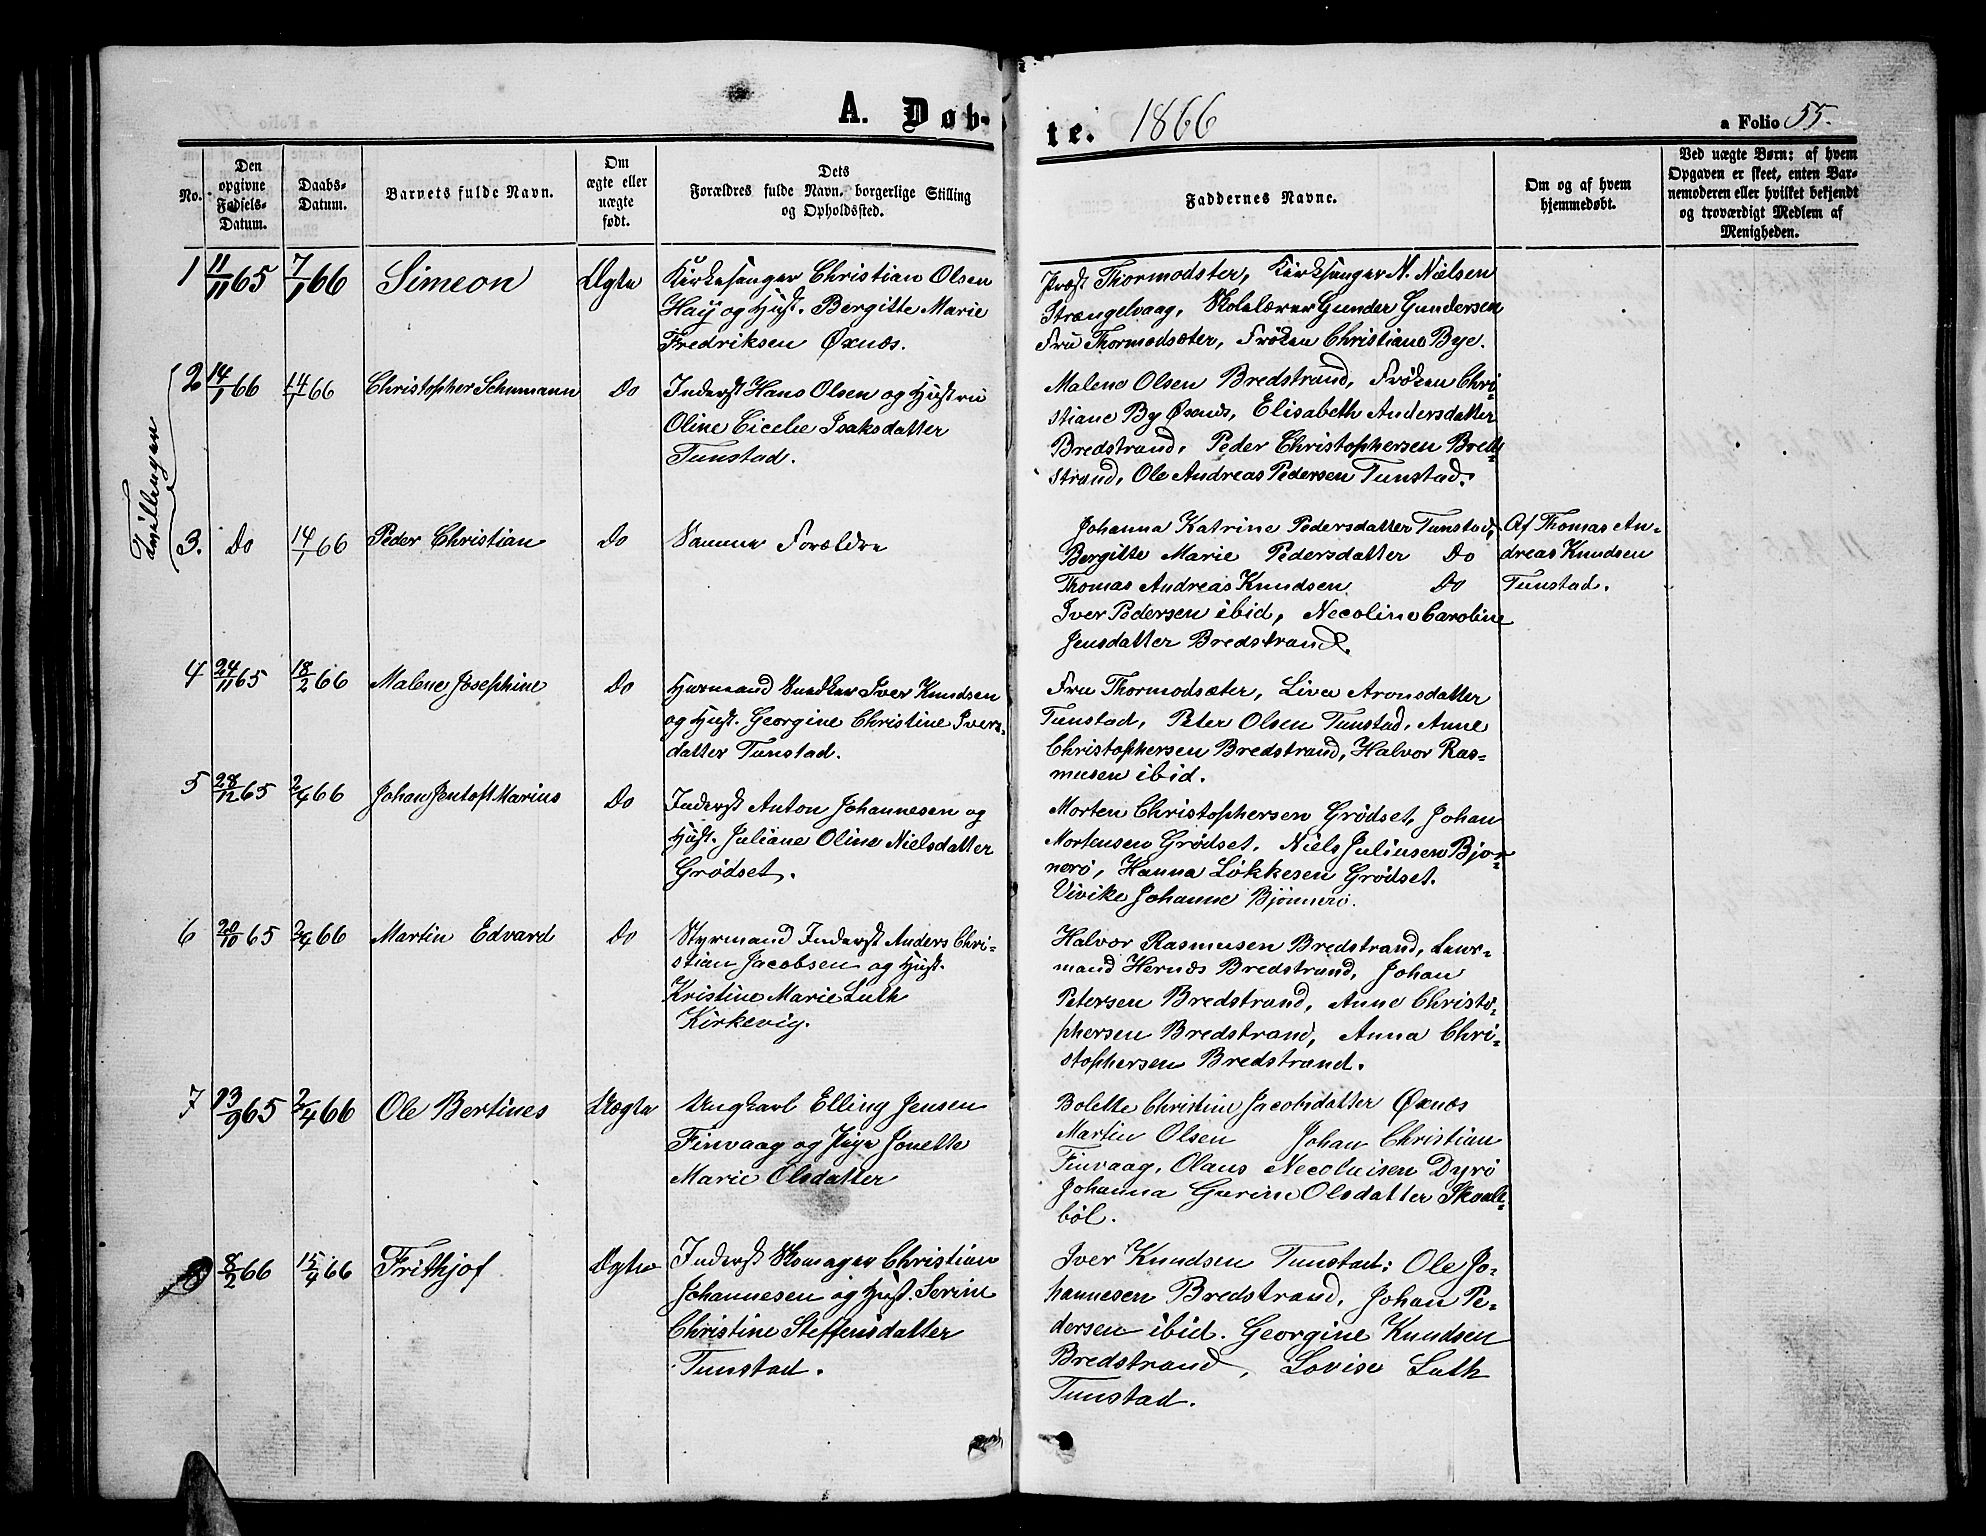 A. Døb-
te. 1866
a Folio 55.
No.
Den opgivne Fødsels-Datum.
Daabs-Datum.
Barnets fulde Navn.
Om ægte eller uægte født.
Dets Forældres fulde Navn, borgerlige Stilling og Opholdssted.
Faddernes Navne.
Om og af hvem hjemmedøbt.
Ved uægte Børn: af hvem Opgaven er skeet, enten Barnemoderen eller hvilket bekjendt og troværdigt Medlem af Menigheden.
1 11/11 65 7/1 66 Simeon Ægte
Kirkesanger Christian Olsen
Høy og Hust. Bergitte Marie
Fredriksen Øxnæs.
Præst Thormodsæter, Kirkesanger N. Nielsen
Strængelvaag, Skolelærer Gunder Gundersen
Fru Thormodsæter, Frøken Christiane Bye.
Tvillinger
2 14/1 66 14/1 66 Christopher Schumann Do
Inderst Hans Olsen og Hustru
Oline Cicelie Isaksdatter
Tunstad.
Malene Olsen Bredstrand, Frøken Chri-
stiane By Øxnæs, Elisabeth Andersdatter
Bredstrand, Peder Christophersen Bred-
strand, Ole Andreas Pedersen Tunstad.
3. Do 14/1 66 Peder Christian Do
Samme Forældre
Johanna Katrine Pedersdatter Tunstad,
Bergitte Marie Pedersdatter Do
Thomas Andreas Knudsen Do
Iver Pedersen ibid, Necoline Caroline
Jensdatter Bredstrand.
Af Thomas An-
dreas Knudsen
Tunstad.
4 24/11 65 18/2 66 Malene Josephine Do
Huusmand Snedker Iver Knudsen
og Hust. Georgine Christine Ivers-
datter Tunstad.
Fru Thormodsæter, Liva Aronsdatter
Tunstad, Peter Olsen Tunstad, Anne
Christophersen Bredstrand, Halvor Ras-
musen ibid.
5 28/12 65 2/4 66 Johan Jentoft Marius Do
Inderst Anton Johannesen og
Hust. Juliane Oline Nielsdatter
Grødset.
Morten Christophersen Grødset, Johan
Mortensen Grødset, Niels Juliusen Bjør-
nerø, Hanna Løkkesen Grødset.
Vivike Johanne Bjønnerø.
6 20/10 65 2/4 66 Martin Edvard Do
Styrmand Inderst Anders Chri-
stian Jacobsen og Hust.
Kristine Marie Luth
Kirkevig.
Halvor Rasmusen Bredstrand, Laur-
mand Hernæs Bredstrand, Johan
Petersen Bredstrand, Anne Christo-
phersen Bredstrand, Anna Chri-
stophersen Bredstrand.
7 13/9 65 2/4 66 Ole Bertines Uægte
Ungkarl Elling Jensen
Finvaag og Pige Jonette
Marie Olsdatter
Bolette Christine Jacobsdatter Øxnæs
Martin Olsen Johan Christian
Finvaag, Olaus Necolaisen Dyrø
Johanna Gurine Olsdatter Skoul-
bøl.
8 8/2 66 15/4 66 Frithjof Ægte
Inderst Skomager Christian
Johannesen og Hust. Serine
Christine Steffensdatter
Tunstad.
Iver Knudsen Tunstad: Ole Jo-
hannesen Bredstrand, Johan Pe-
dersen ibid. Georgine Knudsen
Bredstrand, Lovise Luth
Tunstad.